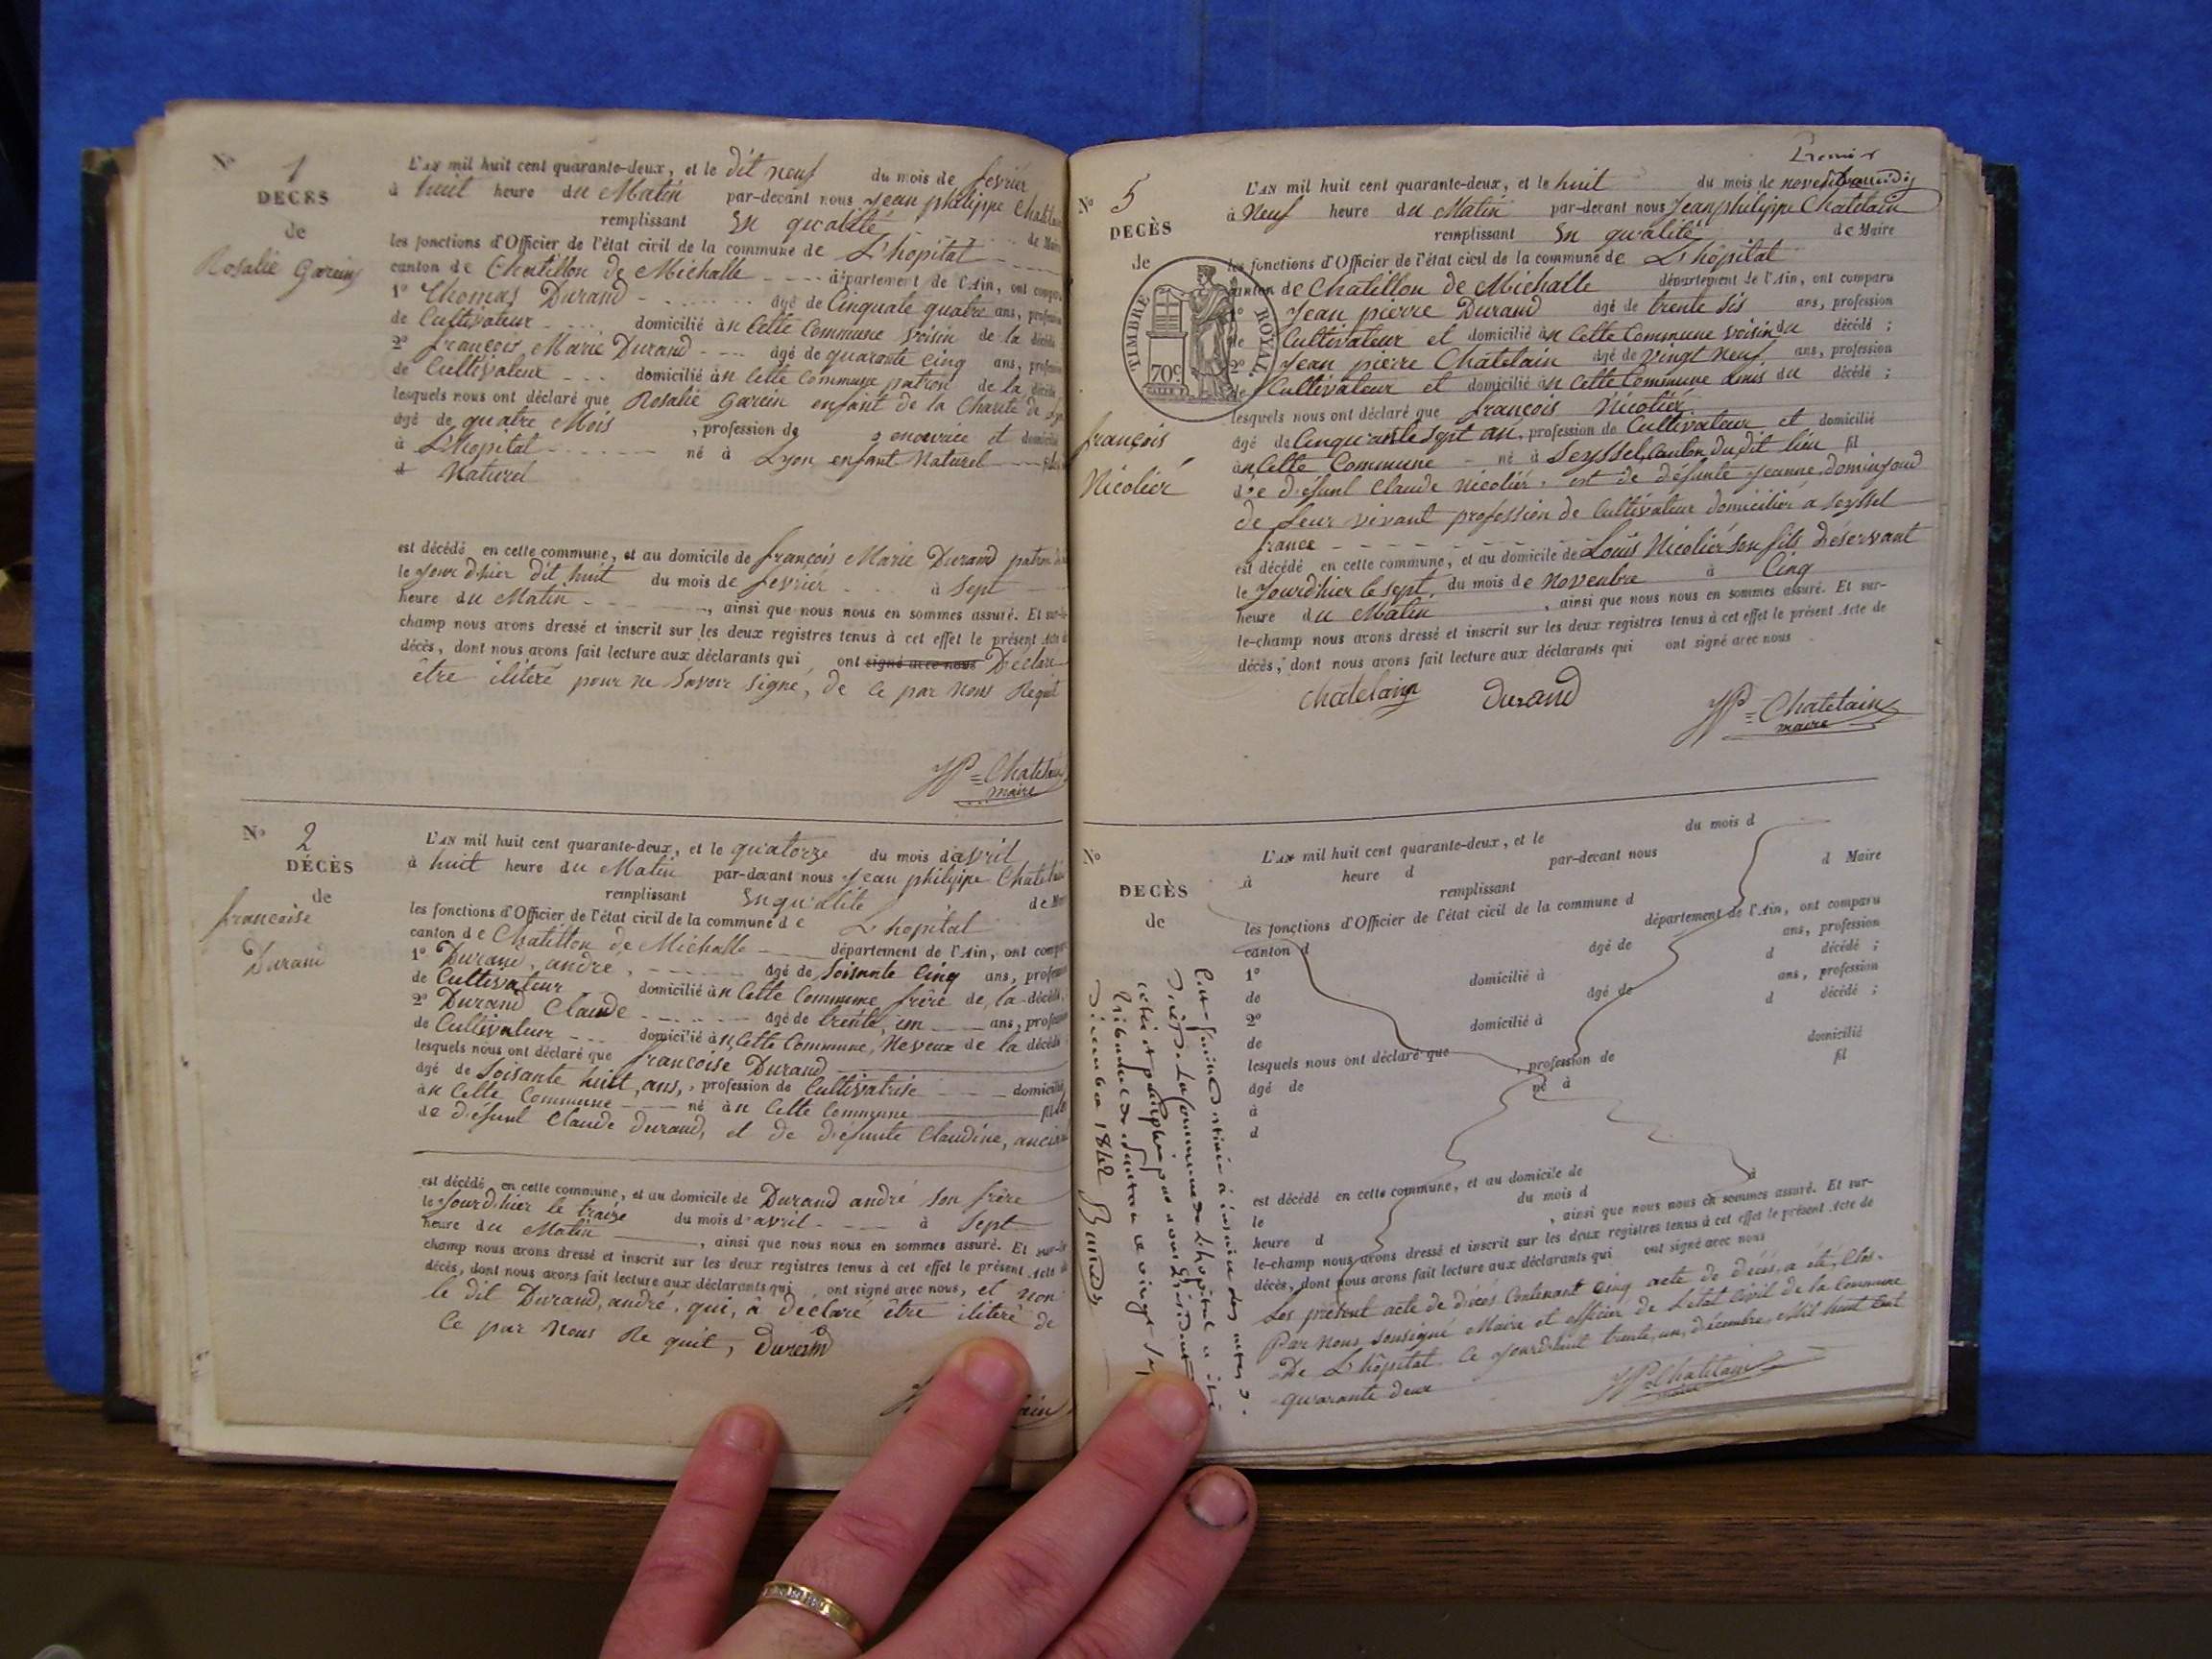 N° 1
DÉCÈS
de
Rosalie Garein
L'AN mil huit cent quarante-deux, et le dit neuf du mois de fevrier
à huit heure du Matin par-devant nous Jean philippe Chatelain
remplissant En qualité de Maire
les fonctions d'Officier de l'état civil de la commune de L'hopital
canton de Chatillon de Michalle département de l'Ain, ont comparu
1° Thomas Durand âgé de Cinquate quatre ans, profession
de Cultivateur domicilié àn Cette Commune voisin de la décédé
2° françois Marie Durand âgé de quarante Cinq ans, profession
de Cultivateur domicilié àn Cette Commune patron de la décédé
lesquels nous ont déclaré que Rosalie Garein enfant de la Charité de
âgé de quatre Mois , profession de et domicilié
à L'hopital né à Lyon enfant Naturel
d Naturel
est décédé en cette commune, et au domicile de françois Marie Durand patron
le Jourdhier dit huit du mois de fevrier à Sept
heure du Matin , ainsi que nous nous en sommes assuré. Et sur-le-
champ nous avons dressé et inscrit sur les deux registres tenus à cet effet le présent Acte d
décès, dont nous avons fait lecture aux déclarants qui ont signé avec nous Déclare
être ilitéré pour ne Savoir Signé, de Ce par Nous Requit
JP = Chatelain
maire
N° 2
DÉCÈS
de
francoise
Durand
L'AN mil huit cent quarante-deux, et le quatorze du mois d'avril
à huit heure du Matin par-devant nous Jean philippe Chatelain
remplissant En qualité de Maire
les fonctions d'Officier de l'état civil de la commune de L'hopital
canton de Chatillon de Michalle département de l'Ain, ont comparu
1° Durand, andré, âgé de Soisante Cinq ans, profession
de Cultivateur domicilié àn Cette Commune frère de la décédé,
2° Durand Claude âgé de trente, un ans, profession
de Cultivateur domicilié àn Cette Commune, Neveux de la décédé
lesquels nous ont déclaré que francoise Durand
âgé de Soisante huit ans, , profession de Cultivatrise domicilié
àn Cette Commune né àn Cette Commune fil
de Défunt Claude Durand, et de Défunte Claudine,
est décédé en cette commune, et au domicile de Durand andré Son frère
le Jourdhier le traize du mois d'avril à Sept
heure du Matin , ainsi que nous nous en sommes assuré. Et sur-le-
champ nous avons dressé et inscrit sur les deux registres tenus à cet effet le présent Acte de
décès, dont nous avons fait lecture aux déclarants qui ont signé avec nous, et non
le dit Durand, andré, qui, a declaré être ilitéré de
Ce par Nous Re quit, Durand
Premier
N° 5
DÉCÈS
de
TIMBRE ROYAL
70c
françois
Nicolier
L'AN mil huit cent quarante-deux, et le huit du mois de novembre
à Neuf heure du Matin par-devant nous Jean philippe Chatelain
remplissant En qualité de Maire
les fonctions d'Officier de l'état civil de la commune de L'hopital
canton de Chatillon de Michalle département de l'Ain, ont comparu
1° Jean pierre Durand âgé de trente sis ans, profession
de Cultivateur et domicilié àn Cette Commune voisin du décédé ;
2° Jean pierre Chatelain âgé de Vingt neuf ans, profession
de Cultivateur et domicilié àn Cette Commune amis du décédé ;
lesquels nous ont déclaré que françois Nicolier
âgé de Cinquante Sept an, profession de Cultivateur et domicilié
àn Cette Commune né à Seyssel, Canton du dit lieu fil
de Défunt Claude Nicolier, est de Défunte Jeanne,
de Leur vivant profession de Cultivateur domicilier a Seyssel
france
est décédé en cette commune, et au domicile de Louis Nicolier Son fils Déservant
le Jourdhier le sept, du mois de Novenbre à Cinq
heure du Matin , ainsi que nous nous en sommes assuré. Et sur-
le-champ nous avons dressé et inscrit sur les deux registres tenus à cet effet le présent Acte de
décès, dont nous avons fait lecture aux déclarants qui ont signé avec nous
Chatelain Durand JP = Chatelain
maire
N°
DÉCÈS
de
L'AN mil huit cent quarante-deux, et le du mois d
à heure d par-devant nous
remplissant d Maire
les fonctions d'Officier de l'état civil de la commune d
canton d département de l'Ain, ont comparu
1° âgé de ans, profession
de domicilié à d décédé ;
2° âgé de ans, profession
de domicilié à d décédé ;
lesquels nous ont déclaré que
âgé de , profession de domicilié
à né à fil
d
est décédé en cette commune, et au domicile de
le du mois d à
heure d , ainsi que nous nous en sommes assuré. Et sur-
le-champ nous avons dressé et inscrit sur les deux registres tenus à cet effet le présent Acte de
décès, dont nous avons fait lecture aux déclarants qui ont signé avec nous
Les présent acte de décès Contenant Cinq acte de décès, a été, Clos.
Par Nous Sousigné Maire et officier de L'etat Civil de la Commune
De L'hôpital Ce Jourdhuit trente, un, décembre, Mil huit Cent
quarante deux JP Chatelain
maire
destiné à inscrire les actes de
Décès de la Commune de L'hopital a été
coté et paraphé par nous Président
Tribunal de Nantua ce vingt
Décembre 1842